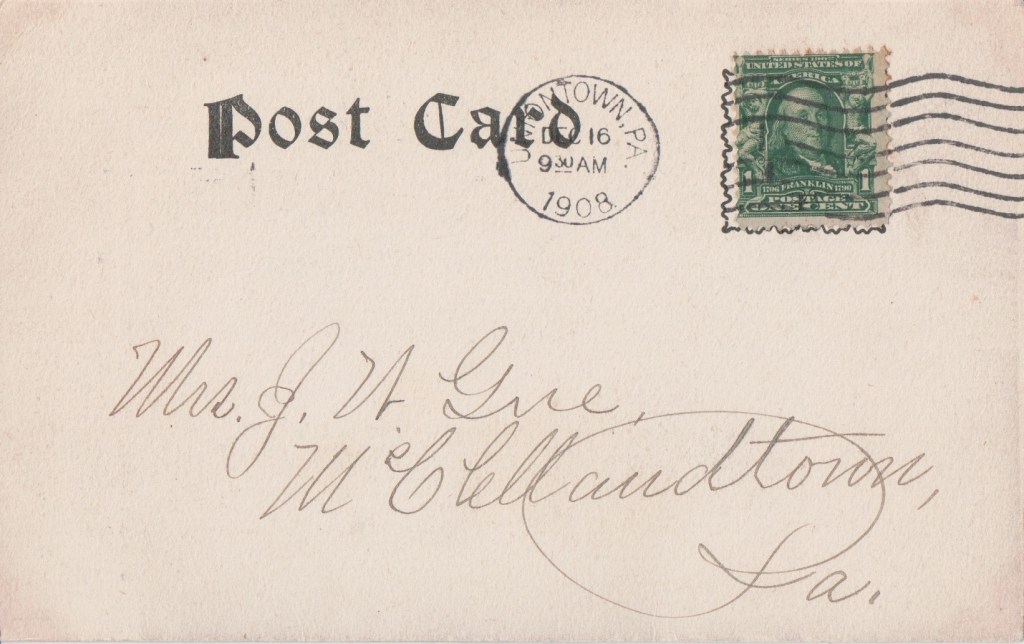 Post Card
UNIONTOWN, PA.
DEC 16
9 30 AM
1908
SERIES 1902
UNITED STATES OF
AMERICA
1 1
1706 FRANKLIN 1790
POSTAGE
ONE CENT
Mrs. J. W Gue,
McClellandtown,
Pa.